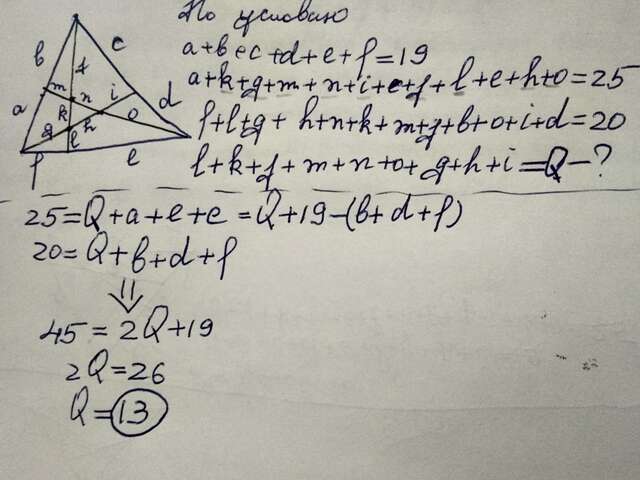 По условию
a+b+c+d+e+f=19
a+k+g+m+n+i+c+f+l+e+h+o=25
f+l+g+h+n+k+m+f+b+o+i+d=20
l+k+f+m+n+o+g+h+i=Q-?
25=Q+a+e+e=Q+19-(b+d+f)
20=Q+b+d+f
⇓
45=2Q+19
2Q=26
Q=13
b
c
f
m
n
i
d
a
k
o
g
h
l
f
e